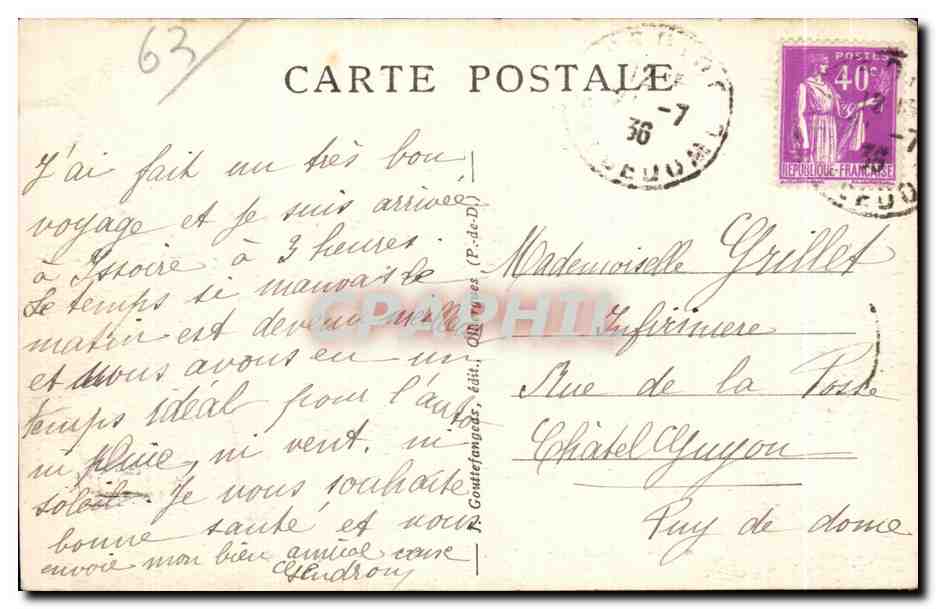 63
CARTE POSTALE
POSTES
40c
REPUBLIQUE FRANCAISE
-7
36
J'ai fait un très bon
voyage et je suis arrivée
à Issoire à 3 heures.
Le temps si mauvais le
matin est devenu
et nous avons eu un
temps idéal pour l'auto
ni pluie, ni vent, ni
soleil. Je vous souhaite
bonne santé et vous
envoie mon bien amical
Gendron
J. Gouttefangeas, édit., (P.-de-D.)
CPAPHIL
Mademoiselle Grillet
Infirmiere
Rue de la Poste
Châtel Guyon
Puy de dome